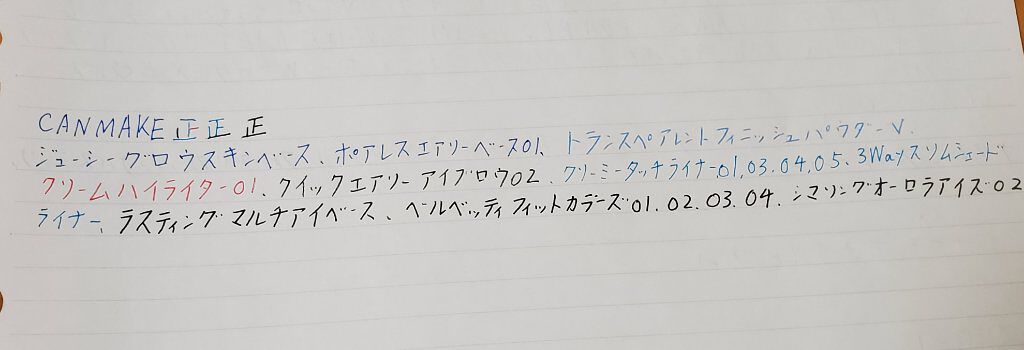 CANMAKE 正 正 正
ジューシーグロウスキンベース、ポアレスエアリーベース01、トランスペアレントフィニッシュパウダーV.
クリームハイライター01、クイックエアリーアイブロウ02、クリーミータッチライナー01,03.04,05、3Wayスリムシェード
ライナー、ラスティングマルチアイベース、ベルベッティフィットカラーズ01.02.03.04.シマリングオーロラアイズ02